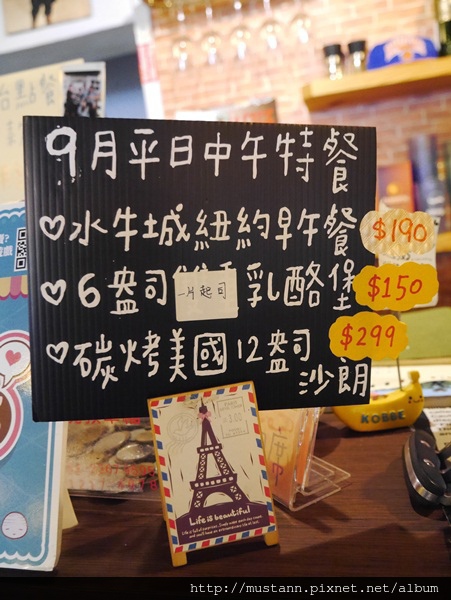 9月平日中午特餐
♡水牛城紐約早午餐 $190
♡6盎司 一片起司 乳酪堡 $150
♡碳烤美國12盎司 $299
沙朗
KOBBE
Life is beautiful
http://mustann.pixnet.net/album